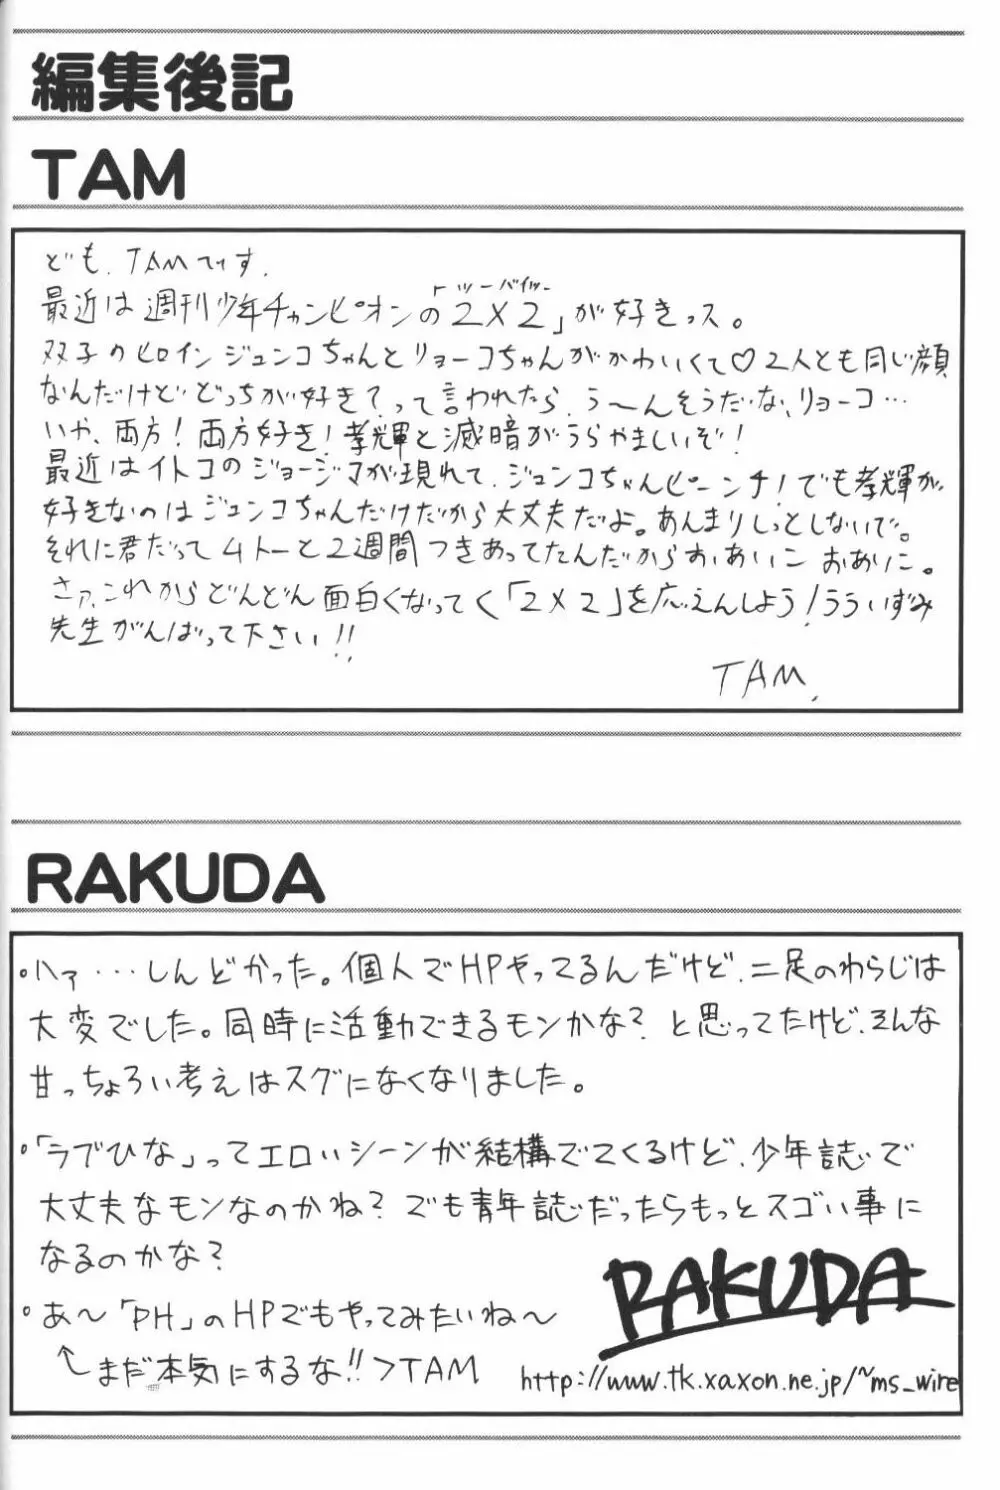 編集後記
TAM
ども、TAMです。
トゥーバイツー
最近は週刊少年チャンピオンの「2×2」が好きっス。
双子のヒロインジュンコちゃんとリョーコちゃんがかわいくて♡2人とも同じ顔
なんだけどどっちが好き?って言われたら、う〜んそうだな、リョーコ…
いや、両方!両方好き!孝輝と滅暗がうらやましいぞ!
最近はイトコのジョージマが現れて、ジュンコちゃんピーンチ!でも孝輝が、
好きなのはジュンコちゃんだけだから大丈夫だよ。あんまりしっとしないで。
それに君だってムトーと2週間つきあってたんだからおあいこ おあいこ。
さァ、これからどんどん面白くなってく「2×2」を応えんしよう!ううさいずみ
先生がんばって下さい!!
TAM.
RAKUDA
・ハァ…しんどかった。個人でHPやってるんだけど、二足のわらじは
大変でした。同時に活動できるモンかな?と思ってたけど、そんな
甘っちょろい考えはスグになくなりました。
・「ラブひな」ってエロいシーンが結構でてくるけど、少年誌で
大丈夫なモンなのかね?でも青年誌だったらもっとスゴい事に
なるのかな?
・あ〜「PH」のHPでもやってみたいね〜
RAKUDA
↑まだ本気にするな!!>TAM
http://www.tk.xaxon.ne.jp/~ms_wire